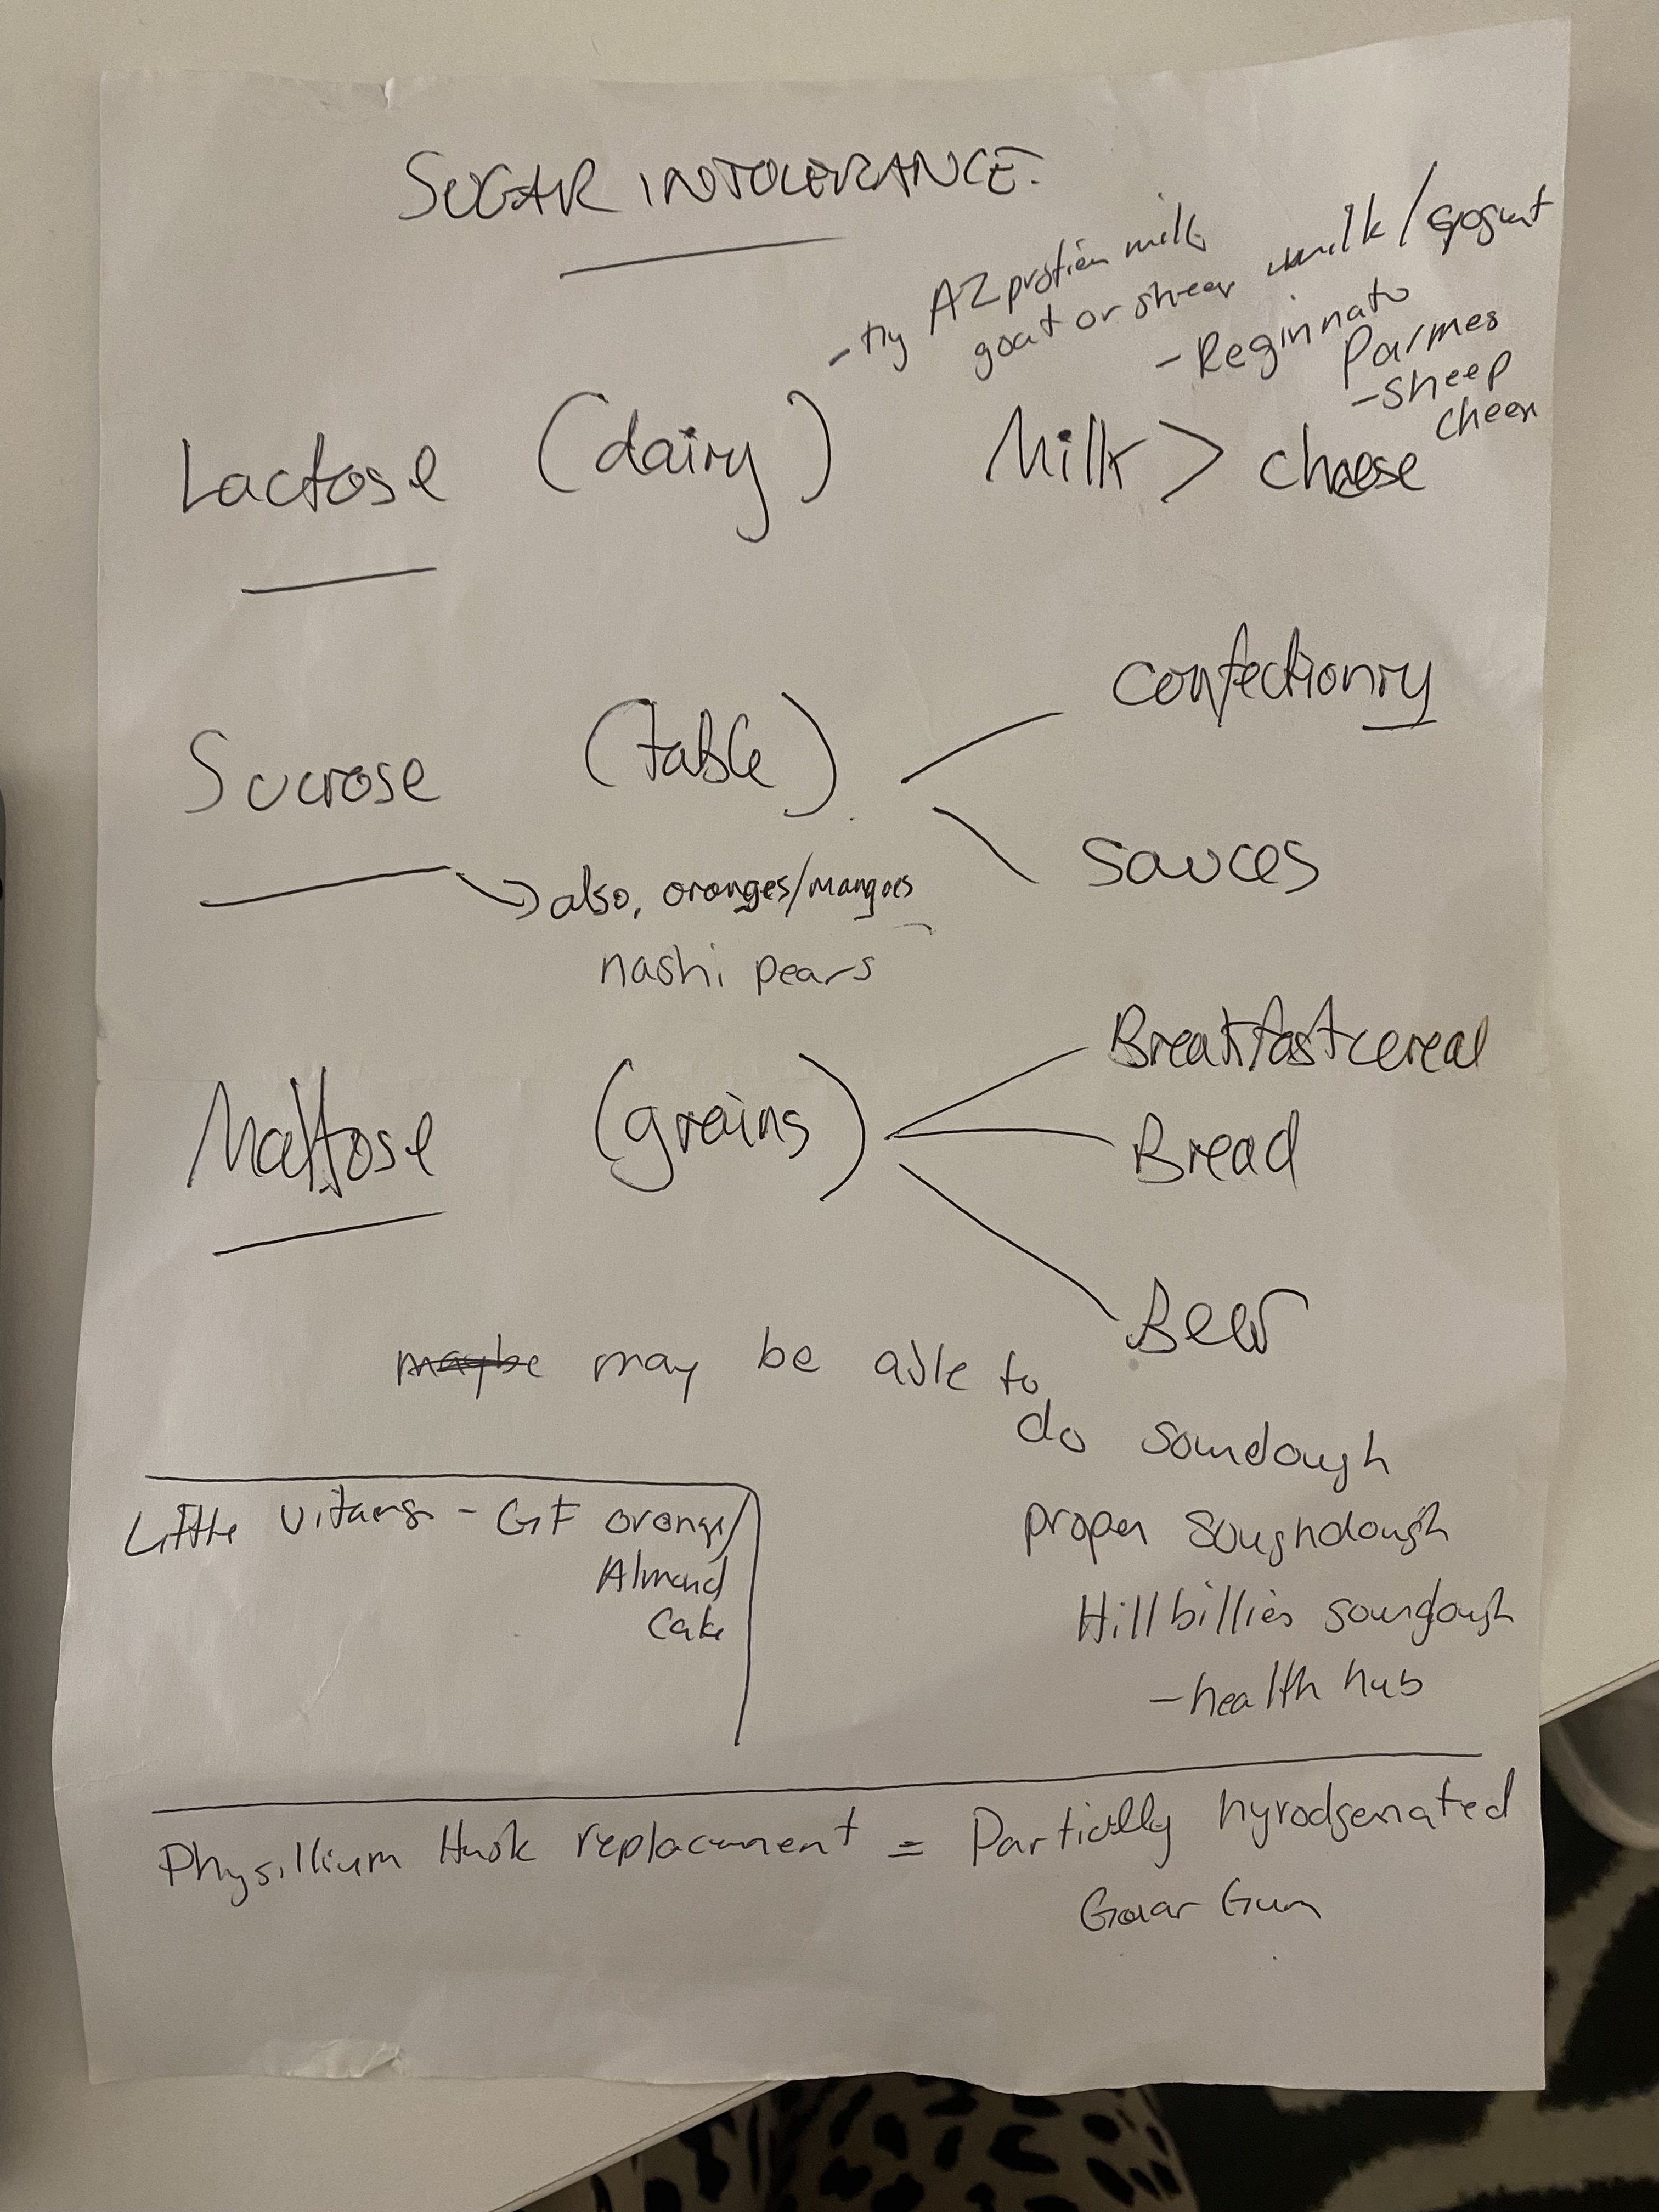 SUGAR INTOLERANCE.
- try A2 protien milk
goat or sheep milk/yogurt
- Reginnato
Parmes
- sheep
cheese
Lactose (dairy) Milk > cheese
Sucrose (table)
confectionry
sauces
also, oranges/mangoes
nashi pears
Maltose (grains)
Breakfast cereal
Bread
Beer
maybe may be able to
do sourdough
proper soughdough
Hillbillies sourdough
- health hub
Little - GF orange/
Almond
Cake
Physillium Husk replacement = Partially hyrodgenated
Guar Gum